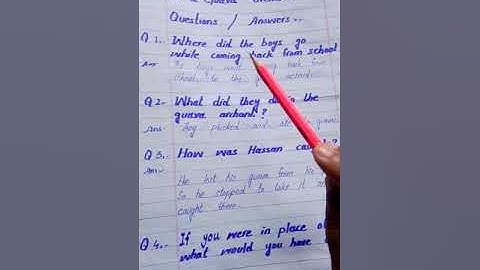 Guava
Questions / Answers..
Q 1.. Where did the boys go
while coming back from school
Ans
school to the
Q 2- What did they do in the
guava archard?
Ans- They plucked and ate the guava
Q 3. How was Hassan
Ans-
He lost his guava from his
So he stopped to take it and
caught there.
Q 4.- If you were in place of
what would you have